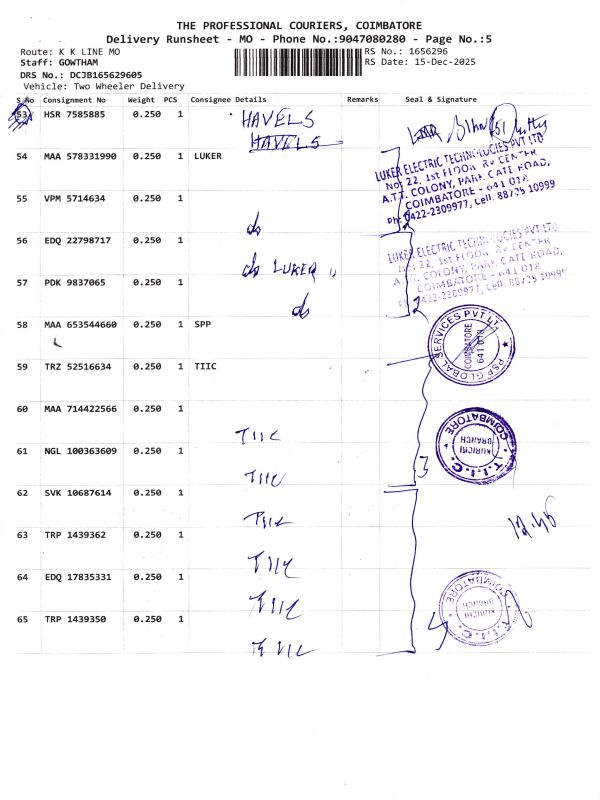 THE PROFESSIONAL COURIERS, COIMBATORE
Delivery Runsheet - MO - Phone No.:9047080280 - Page No.:5
Route: K K LINE MO RS No.: 1656296
Staff: GOWTHAM RS Date: 15-Dec-2025
DRS No.: DCJB165629605
Vehicle: Two Wheeler Delivery
S.No Consignment No Weight PCS Consignee Details Remarks Seal & Signature
53 HSR 7585885 0.250 1 HAVELS
HAVELS
54 MAA 578331990 0.250 1 LUKER
LUKER ELECTRIC TECHNOLOGIES PVT LTD
No: 22, 1st FLOOR, RV CENTER
A.T.T. COLONY, PARK GATE ROAD,
COIMBATORE - 641 018
Ph: 0422-2309977, Cell: 88705 10999
55 VPM 5714634 0.250 1
do
2
56 EDQ 22798717 0.250 1
do LUKER "
LUKER ELECTRIC TECHNOLOGIES PVT LTD
No: 22, 1st FLOOR, RV CENTER
A.T.T. COLONY, PARK GATE ROAD,
COIMBATORE - 641 018
Ph: 0422-2309977, Cell: 88705 10999
57 PDK 9837065 0.250 1
do
2
58 MAA 653544660 0.250 1 SPP
PSP GLOBAL SERVICES PVT LTD
COIMBATORE
641 018
59 TRZ 52516634 0.250 1 TIIC
60 MAA 714422566 0.250 1
TIIC
T.I.I.C. COIMBATORE
KURICHI
BRANCH
61 NGL 100363609 0.250 1
3
TIIC
62 SVK 10687614 0.250 1
TIIC
12.45
63 TRP 1439362 0.250 1
TIIC
64 EDQ 17835331 0.250 1
TIIC
T.I.I.C. COIMBATORE
KURICHI
BRANCH
65 TRP 1439350 0.250 1
4
TIIC